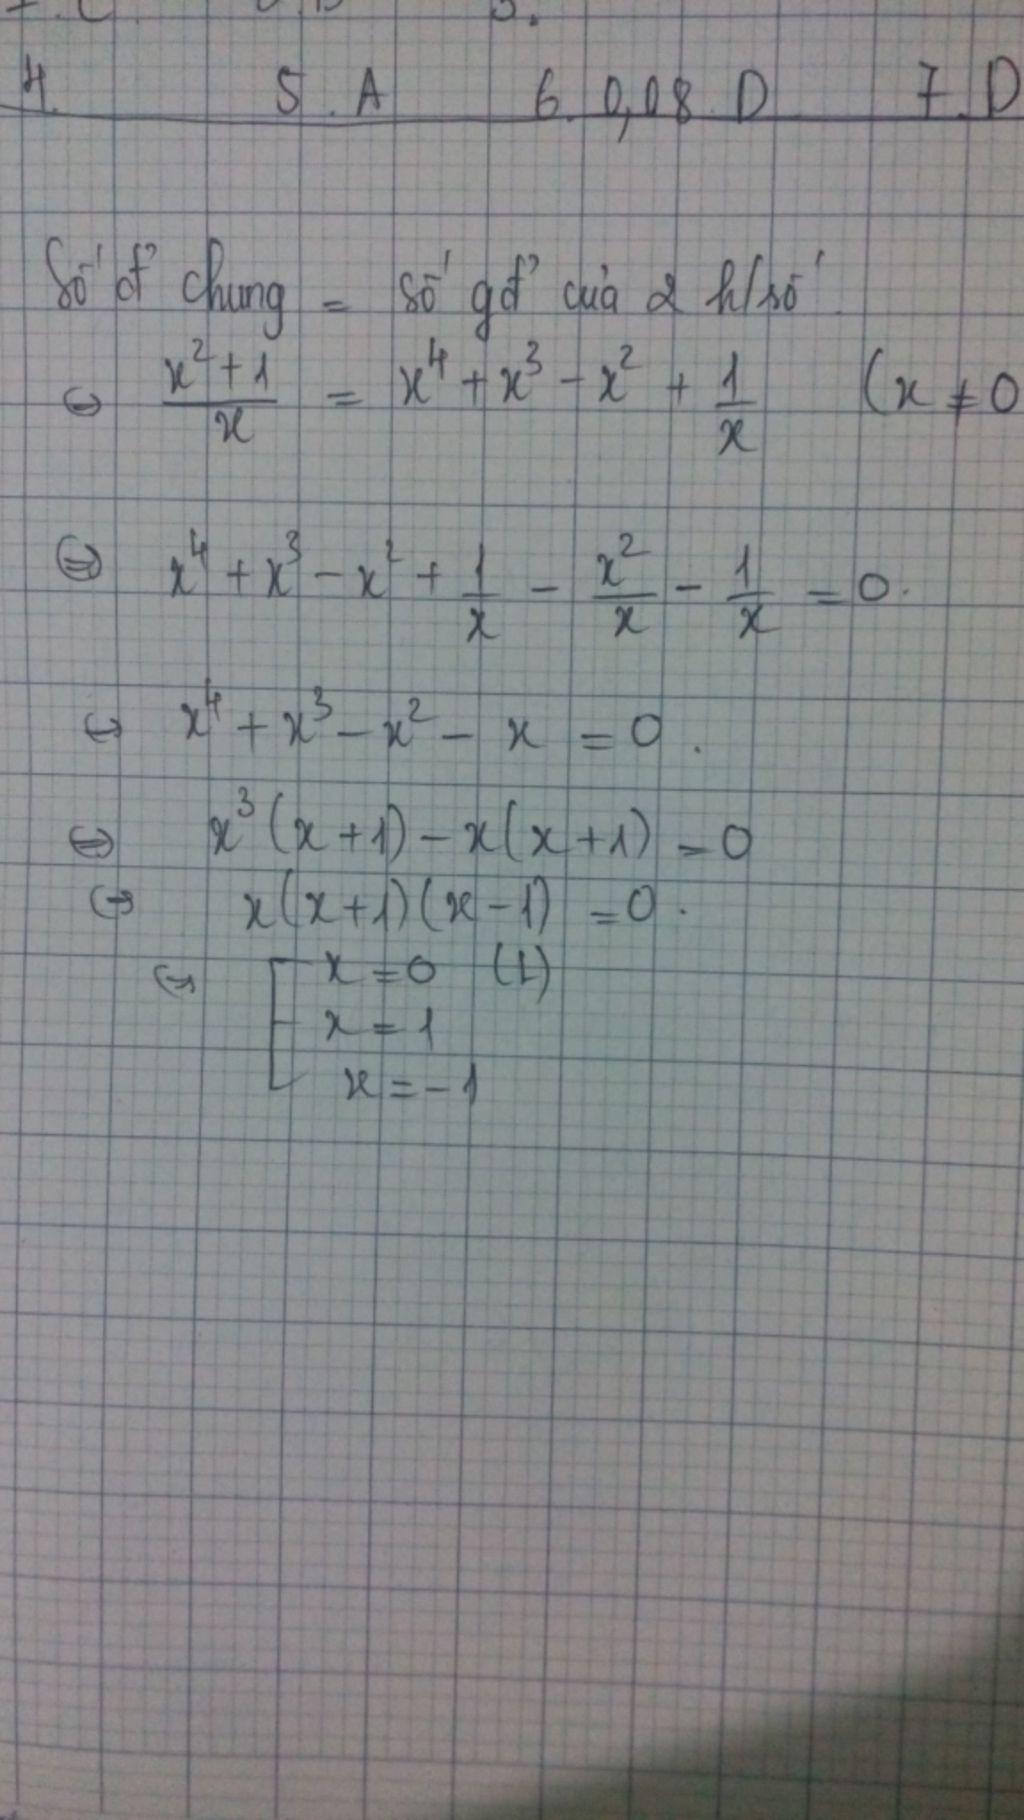 4. 5. A 6. 0,08. D 7. D
Số đ' chung = số gđ' của 2 h/số
⇔ (x²+1)/x = x⁴ + x³ - x² + 1/x (x ≠ 0
⇔ x⁴ + x³ - x² + 1/x - x²/x - 1/x = 0.
⇔ x⁴ + x³ - x² - x = 0.
⇔ x³(x+1) - x(x+1) = 0
⇔ x(x+1)(x-1) = 0.
⇔ [ x = 0 (L)
x = 1
x = -1